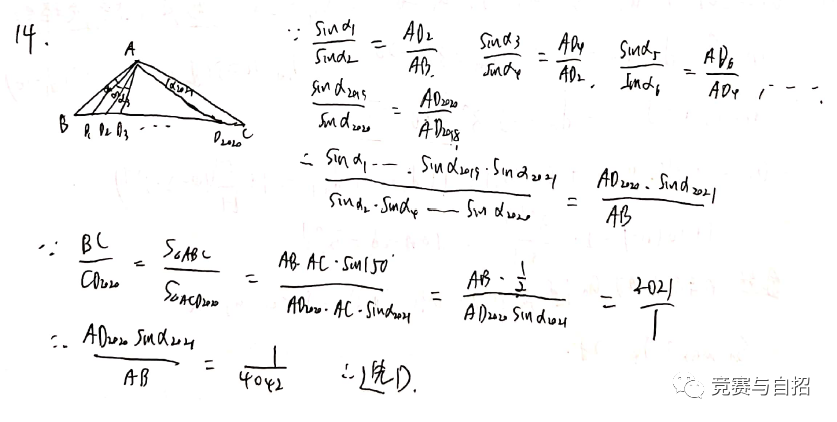 14.
A
α₁ α₃ α₂₀₂₁
B D₁ D₂ D₃ ⋯ D₂₀₂₀ C
∵ sinα₁/sinα₂ = AD₂/AB sinα₃/sinα₄ = AD₄/AD₂, sinα₅/sinα₆ = AD₆/AD₄, ⋯
sinα₂₀₁₉/sinα₂₀₂₀ = AD₂₀₂₀/AD₂₀₁₈
∴ sinα₁⋯sinα₂₀₁₉·sinα₂₀₂₁/sinα₂·sinα₄⋯sinα₂₀₂₀ = AD₂₀₂₀·sinα₂₀₂₁/AB
∵ BC/CD₂₀₂₀ = S△ABC/S△ACD₂₀₂₀ = AB·AC·sin150°/AD₂₀₂₀·AC·sinα₂₀₂₁ = AB·½/AD₂₀₂₀ sinα₂₀₂₁ = 2021/1
∴ AD₂₀₂₀ sinα₂₀₂₁/AB = 1/4042 ∴选D.
竞赛与自招